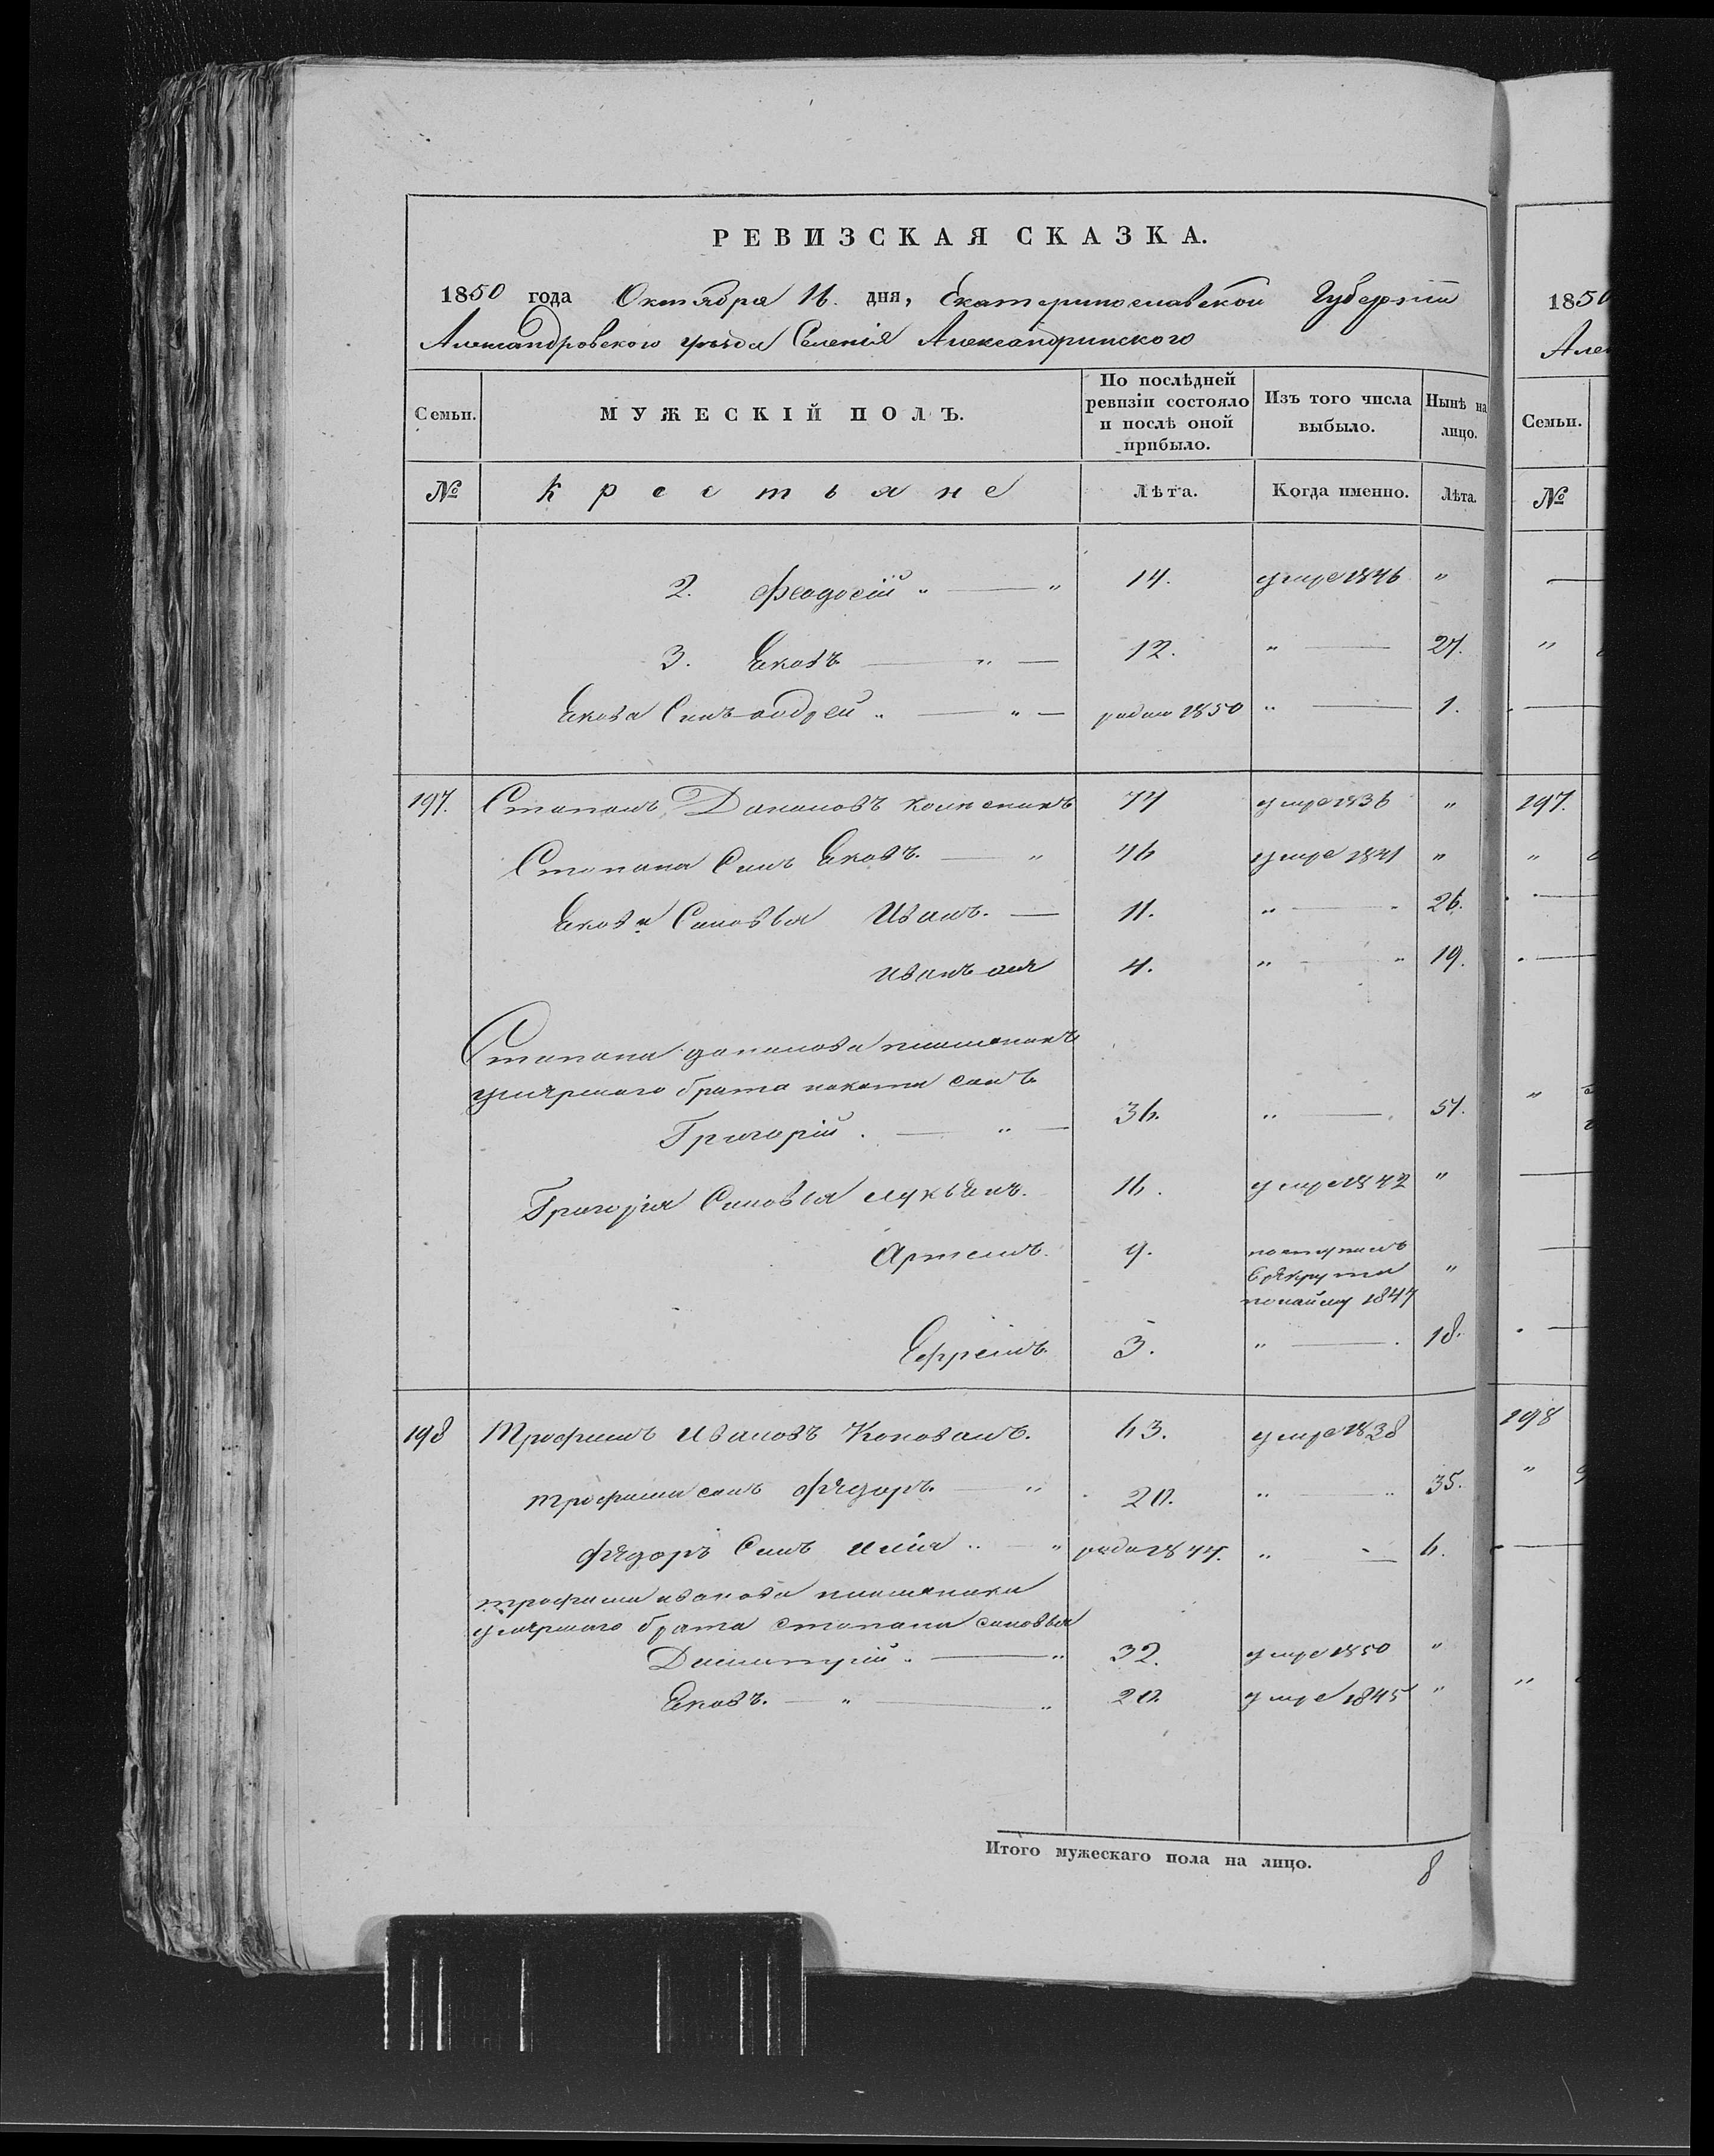 РЕВИЗСКАЯ СКАЗКА.
1850 года Октября 16. дня, Екатеринославской Губерніи
Александровского уѣзда Селенія Александринского
Семьи. МУЖЕСКІЙ ПОЛЪ. По послѣдней ревизіи состояло и послѣ оной прибыло. Изъ того числа выбыло. Нынѣ на лицо.
№ Крестьяне Лѣта. Когда именно. Лѣта.
2. Феодосій " — " 14. умре 1846 "
3. Ековъ — " — 12. " — 27.
Екова Синъ андрей " — " — родил 1850 " — 1.
197. Степанъ Даниловъ 77 умре 1836 "
Степана Синъ Ековъ. — " 46 умре 1841 "
Екова Синовья Иванъ. — 11. " — 26.
Иванъ 4. " — " 19.
Степана данилова племеникъ
умершаго брата никиты синъ
Григорій. — " — 36. " — 51.
Григорія Синовья лукьянъ. 16. умре 1842 "
Артемъ. 9. поступилъ
в рекруты "
по найму 1847
Ефремъ. 3. " — 18.
198 Трофимъ Ивановъ Коновалъ. 63. умре 1838
трофима синъ Федоръ. — " 20. " — " 35.
Федоръ Синъ илія " — " родил 1844. " — 6.
трофима иванова племеники
умершаго брата степана синовья
Димитрій. — " 32. умре 1850 "
Ековъ. — " — " 20 умре 1845 "
Итого мужескаго пола на лицо. 8
1850
Але
Семьи.
№
197.
198